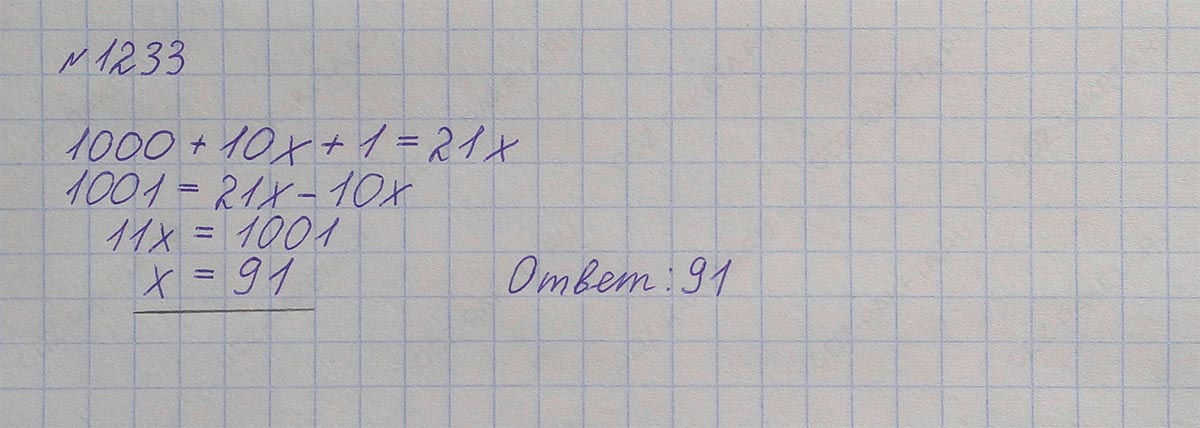 №1233
1000 + 10x + 1 = 21x
1001 = 21x - 10x
11x = 1001
x = 91
Ответ: 91